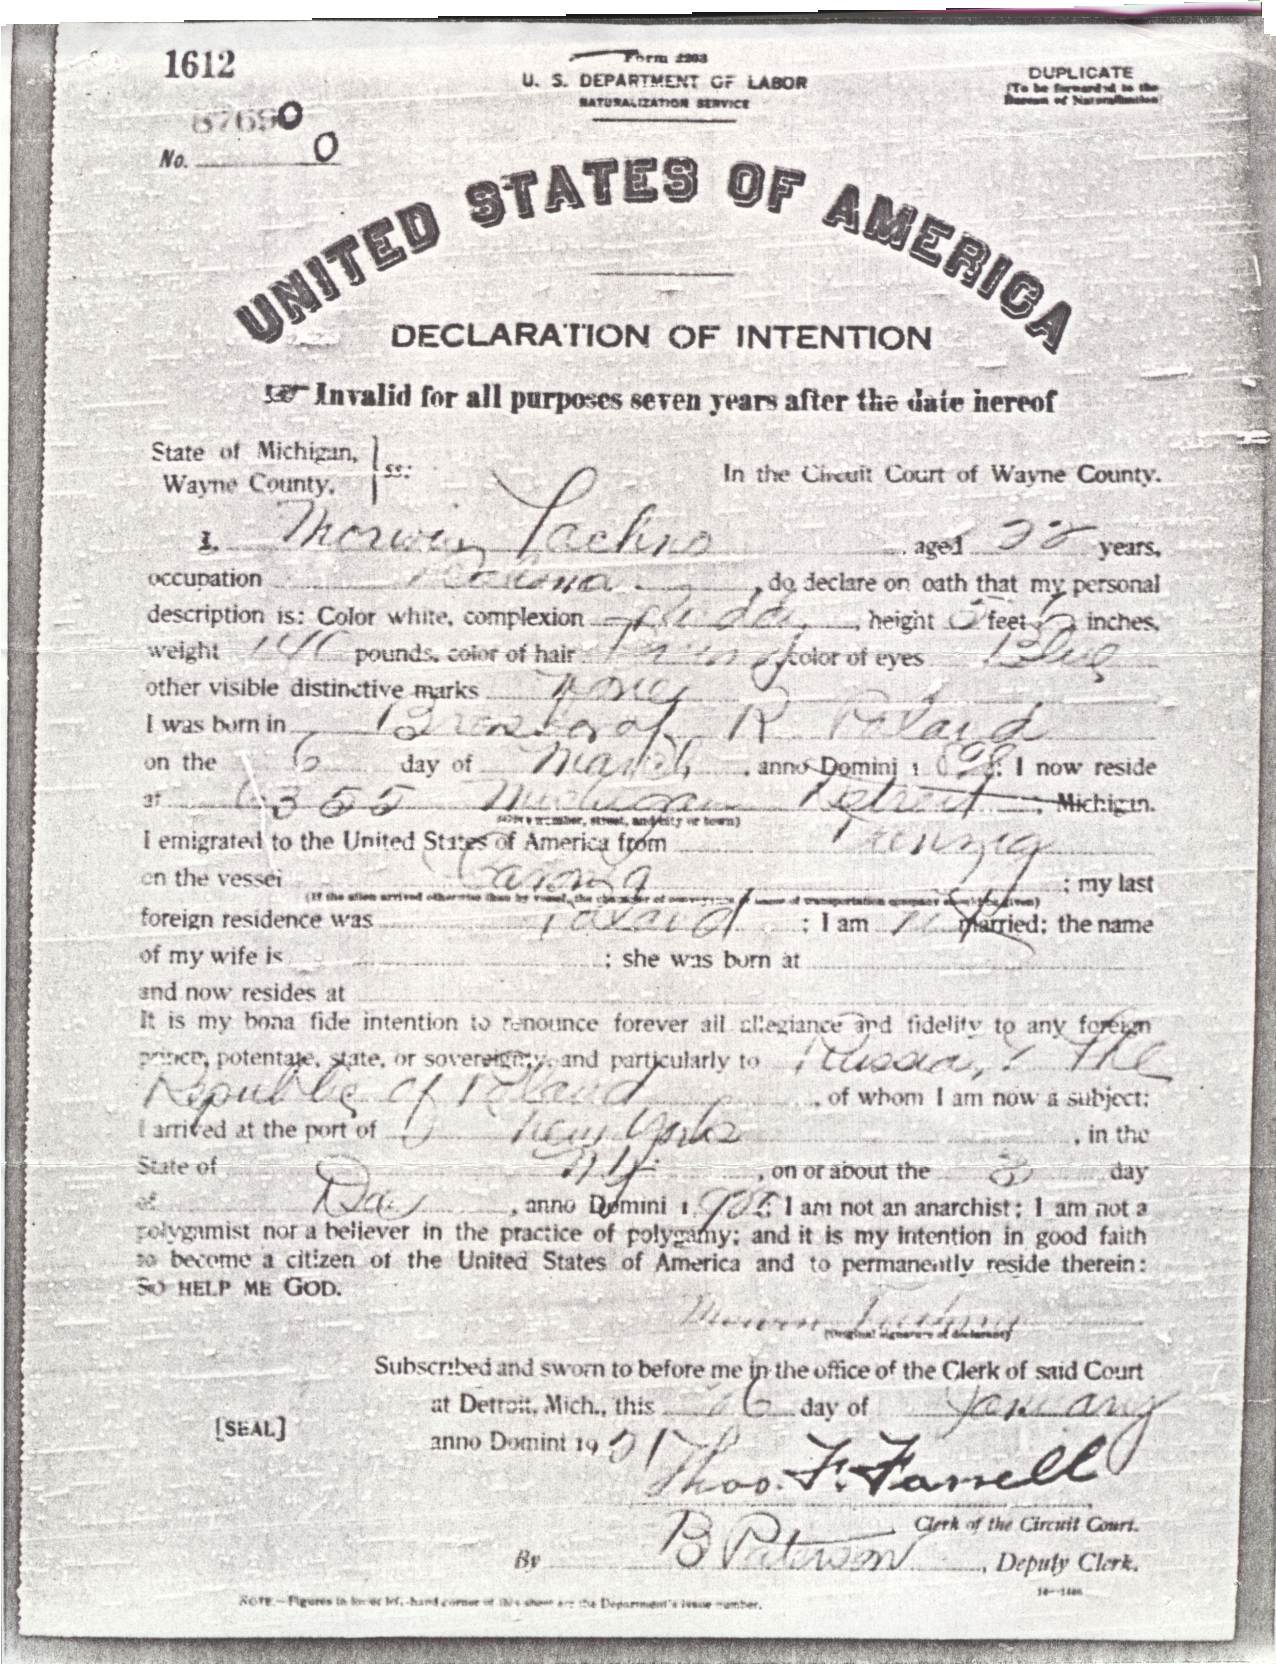 1612
Form 2203
U. S. DEPARTMENT OF LABOR
NATURALIZATION SERVICE
DUPLICATE
(To be forwarded to the
Bureau of Naturalization)
87690
No. 0
UNITED STATES OF AMERICA
DECLARATION OF INTENTION
☞ Invalid for all purposes seven years after the date hereof
State of Michigan,
Wayne County, ss:
In the Circuit Court of Wayne County.
I, aged 22 years,
occupation , do declare on oath that my personal
description is: Color white, complexion Ruddy, height 5 feet 6 inches,
weight 140 pounds, color of hair color of eyes Blue
other visible distinctive marks None
I was born in R. Poland
on the 6 day of March, anno Domini 1898: I now reside
at 6355 Michigan Detroit, Michigan.
(Give number, street, and city or town)
I emigrated to the United States of America from
on the vessel ; my last
(If the alien arrived otherwise than by vessel, the character of conveyance or name of transportation company should be given)
foreign residence was Poland : I am not married; the name
of my wife is ; she was born at
and now resides at
It is my bona fide intention to renounce forever all allegiance and fidelity to any foreign
prince, potentate, state, or sovereignty, and particularly to Russia, & The
Republic of Poland , of whom I am now a subject;
I arrived at the port of New York , in the
State of NY , on or about the 3 day
of , anno Domini 19 ; I am not an anarchist; I am not a
polygamist nor a believer in the practice of polygamy; and it is my intention in good faith
to become a citizen of the United States of America and to permanently reside therein:
SO HELP ME GOD.
(Original signature of declarant)
Subscribed and sworn to before me in the office of the Clerk of said Court
at Detroit, Mich., this 26 day of January
[SEAL]
anno Domini 1921
Thos. F. Farrell
Clerk of the Circuit Court.
By B Paterson , Deputy Clerk.
14—1486
NOTE.—Figures in lower left-hand corner of this sheet are the Department's issue number.